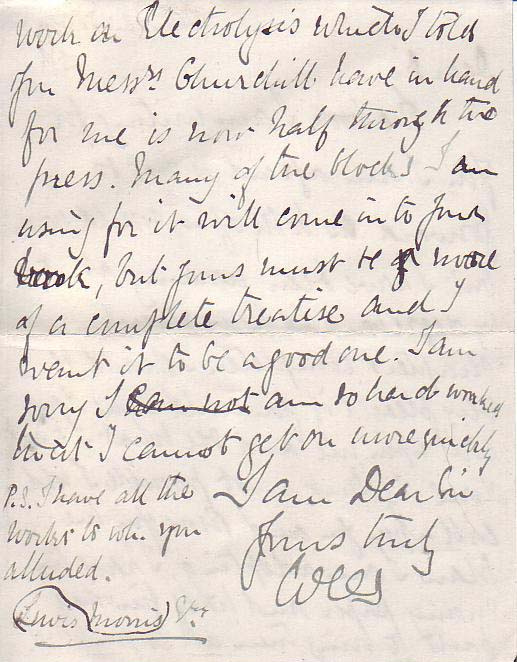 work on Electrolysis which I told
you Messrs Churchill have in hand
for me is now half through the
press. Many of the blocks I am
using for it will come in to your
book, but yours must be more
of a complete treatise and I
want it to be a good one. I am
sorry I am so hard worked
that I cannot get on more quickly
I am Dear Sir
Yours truly
P.S. I have all the
works to wh. you
alluded.
Lewis Morris Esq